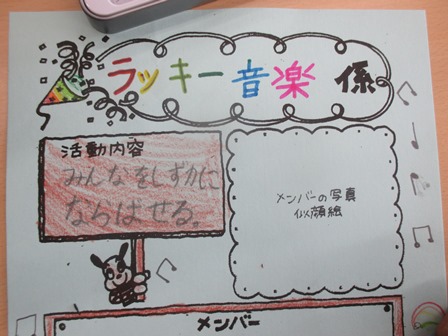 ラッキー音楽 係
活動内容
みんなをしずかに
ならばせる。
メンバーの写真
似顔絵
メンバー